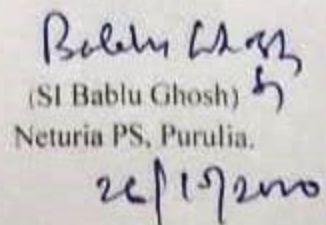 Bablu Ghosh
(SI Bablu Ghosh)
Neturia PS, Purulia.